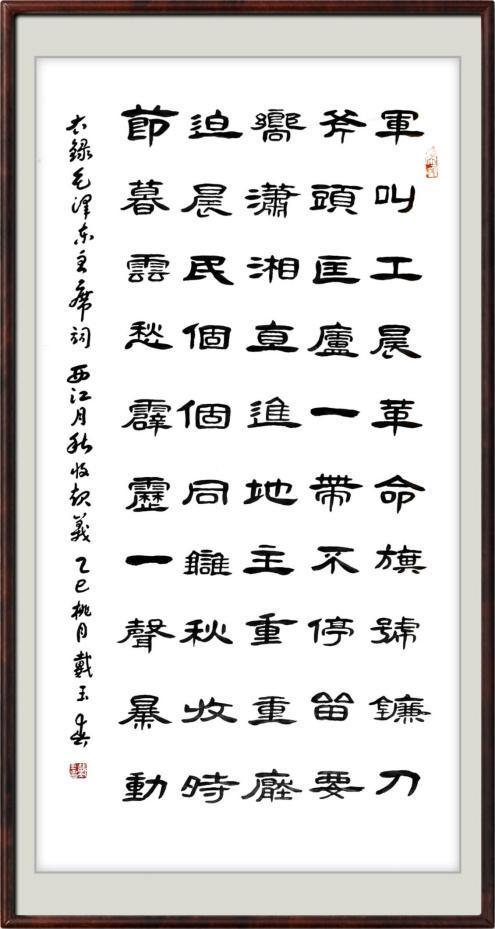 軍叫工晨革命旗號鐮刀
斧頭匡廬一帶不停留要
嚮瀟湘直進地主重重壓
迫晨民個個同讎秋收時
節暮雲愁霹靂一聲暴動
右錄毛澤东主席詞 西江月秋收起義 乙巳桃月戴玉